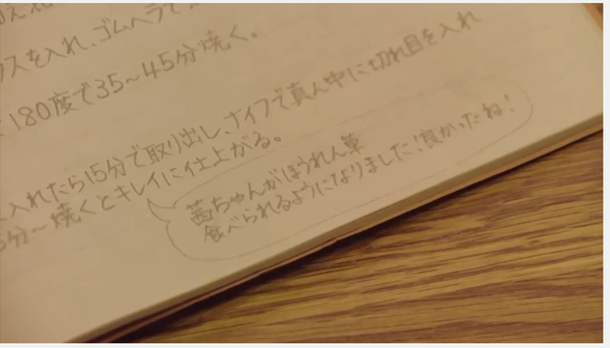 クスを入れ、ゴムヘラで
180度で35～45分焼く。
入れたら15分で取り出し、ナイフで真ん中に切れ目を入れ
5分～焼くとキレイに仕上がる。
茜ちゃんがほうれん草
食べられるようになりました！良かったね！